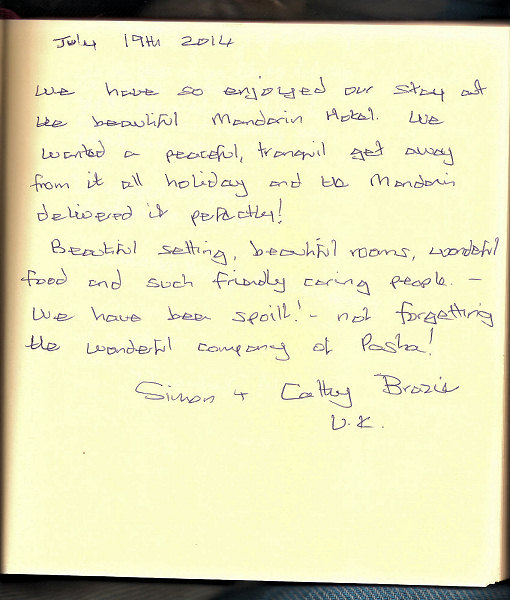 July 19th 2014
We have so enjoyed our stay at
the beautiful Mandarin Hotel. We
wanted a peaceful, tranquil get away
from it all holiday and the Mandarin
delivered it perfectly!
Beautiful setting, beautiful rooms, wonderful
food and such friendly caring people. -
We have been spoilt! - not forgetting
the wonderful company of Pasha!
Simon + Cathy Brazie
U.K.